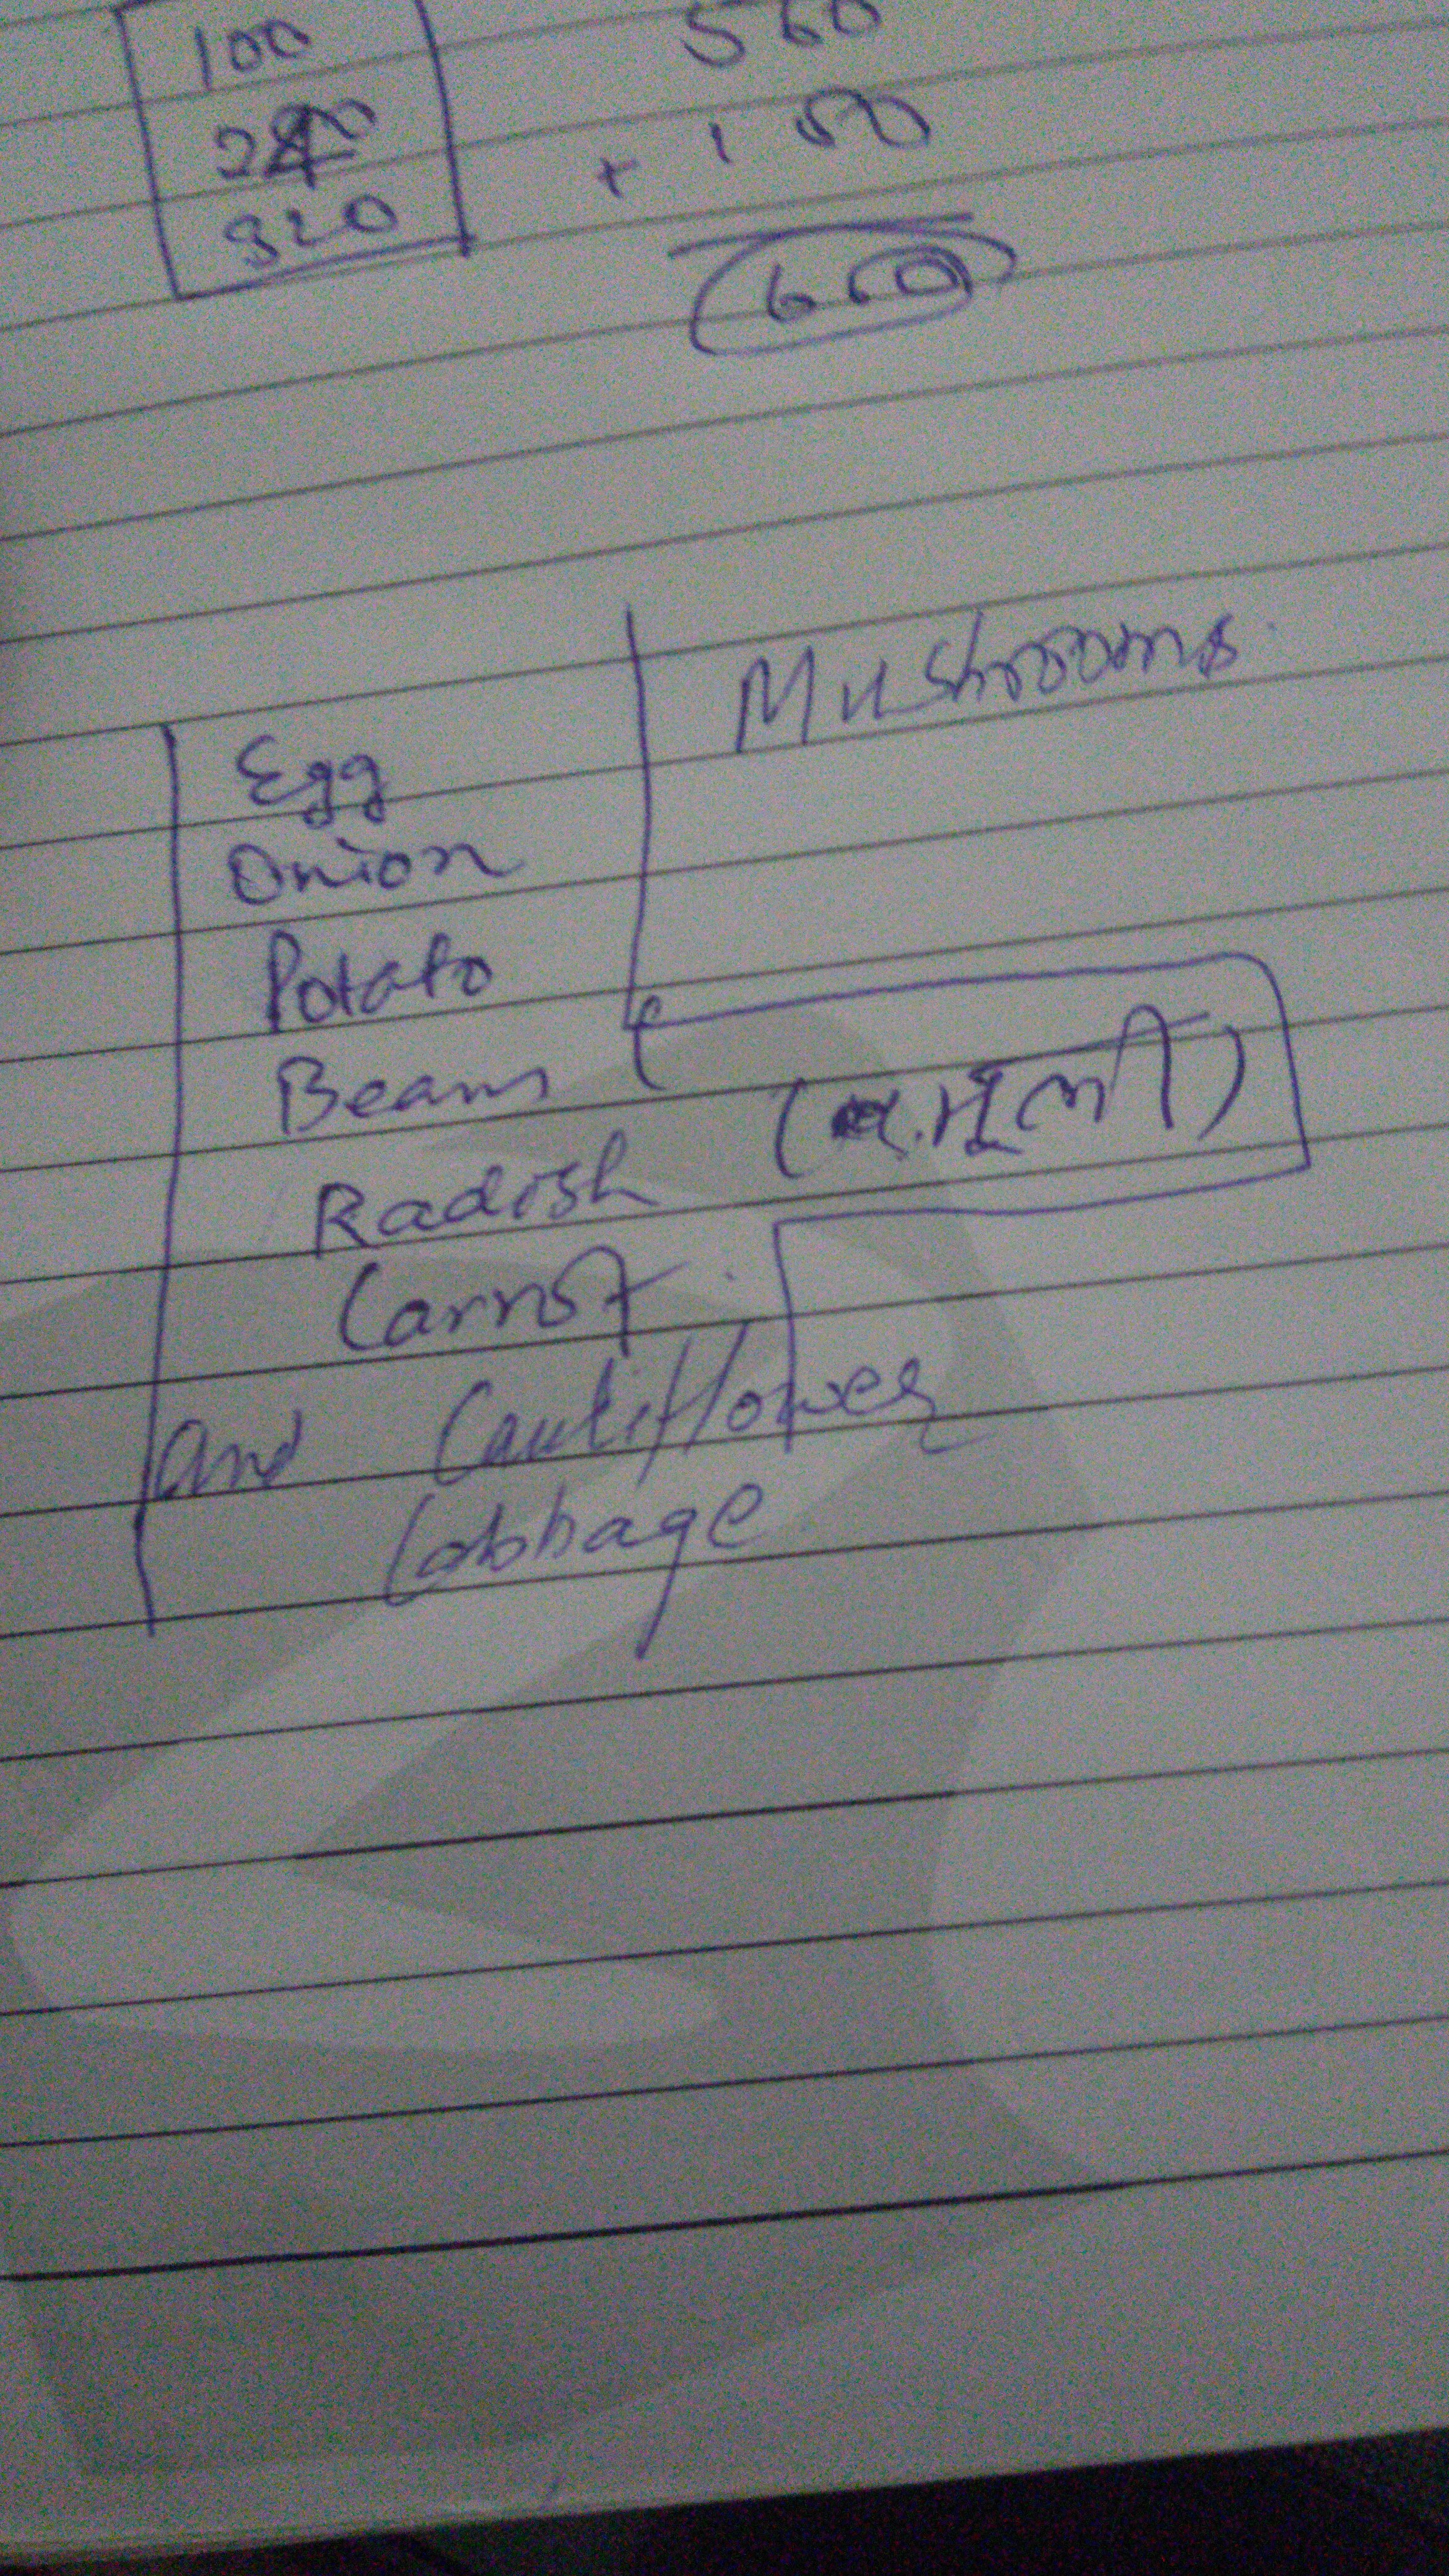 100
560
+ 100
320
660
Mushrooms
Egg
Onion
Potato
Beans
Radish (मूली)
Carrot
and Cauliflower
Cabbage